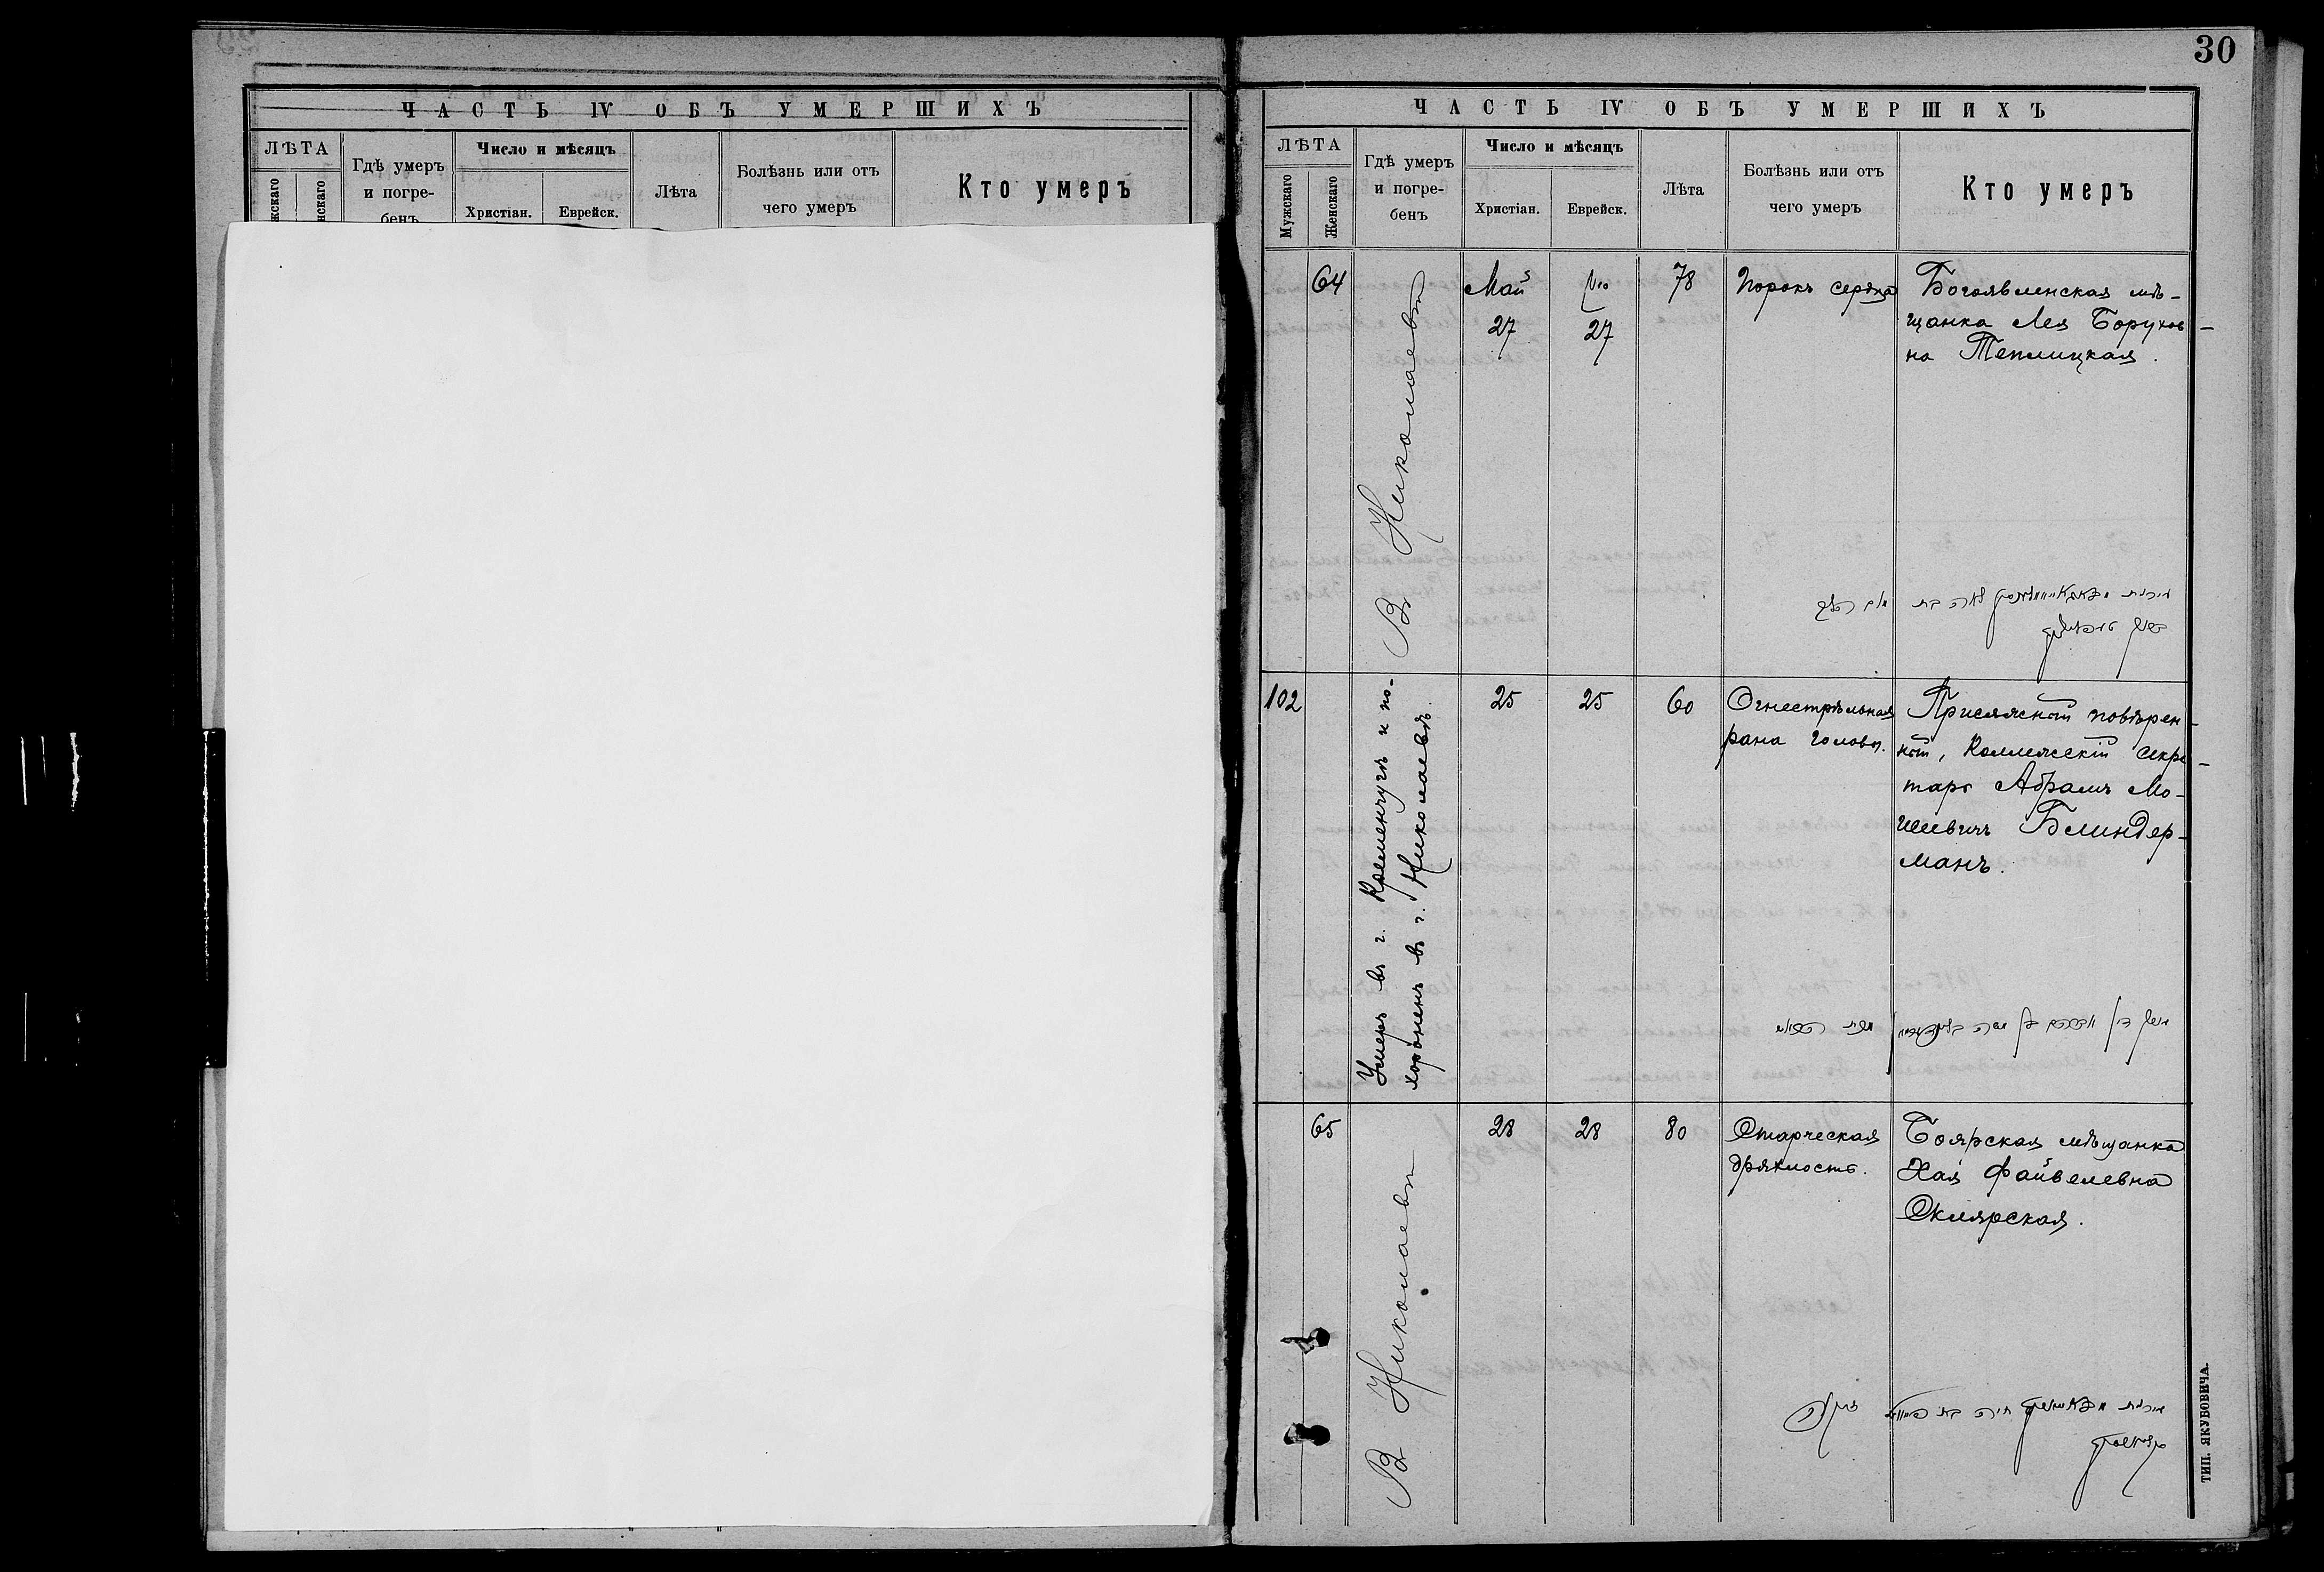 ЧАСТЬ IV ОБЪ УМЕРШИХЪ
ЛѢТА
Гдѣ умеръ
и погре-
бенъ
Число и мѣсяцъ
Христіан.
Еврейск.
Лѣта
Болѣзнь или отъ
чего умеръ
Кто умеръ
30
ЧАСТЬ IV ОБЪ УМЕРШИХЪ
ЛѢТА
Мужскаго
Женскаго
Гдѣ умеръ
и погре-
бенъ
Число и мѣсяцъ
Христіан.
Еврейск.
Лѣта
Болѣзнь или отъ
чего умеръ
Кто умеръ
64
Въ Николаевѣ
Май
27
27
78
Порокъ сердца
Богоявленская мѣ-
щанка Лея Борухов-
на Теплицкая.
102
Умеръ въ г. Кременчугѣ и по-
хороненъ въ г. Николаевѣ.
25
25
60
Огнестрѣльная
рана головы.
Присяжный повѣрен-
ный, Коллежскій секре-
тарь Абрамъ Мо-
шевичъ Блиндер-
манъ.
65
Въ Николаевѣ
28
28
80
Старческая
дряхлость.
Боярская мѣщанка
Хая Файвелевна
Склярская.
ТИП. ЯКУБОВИЧА.